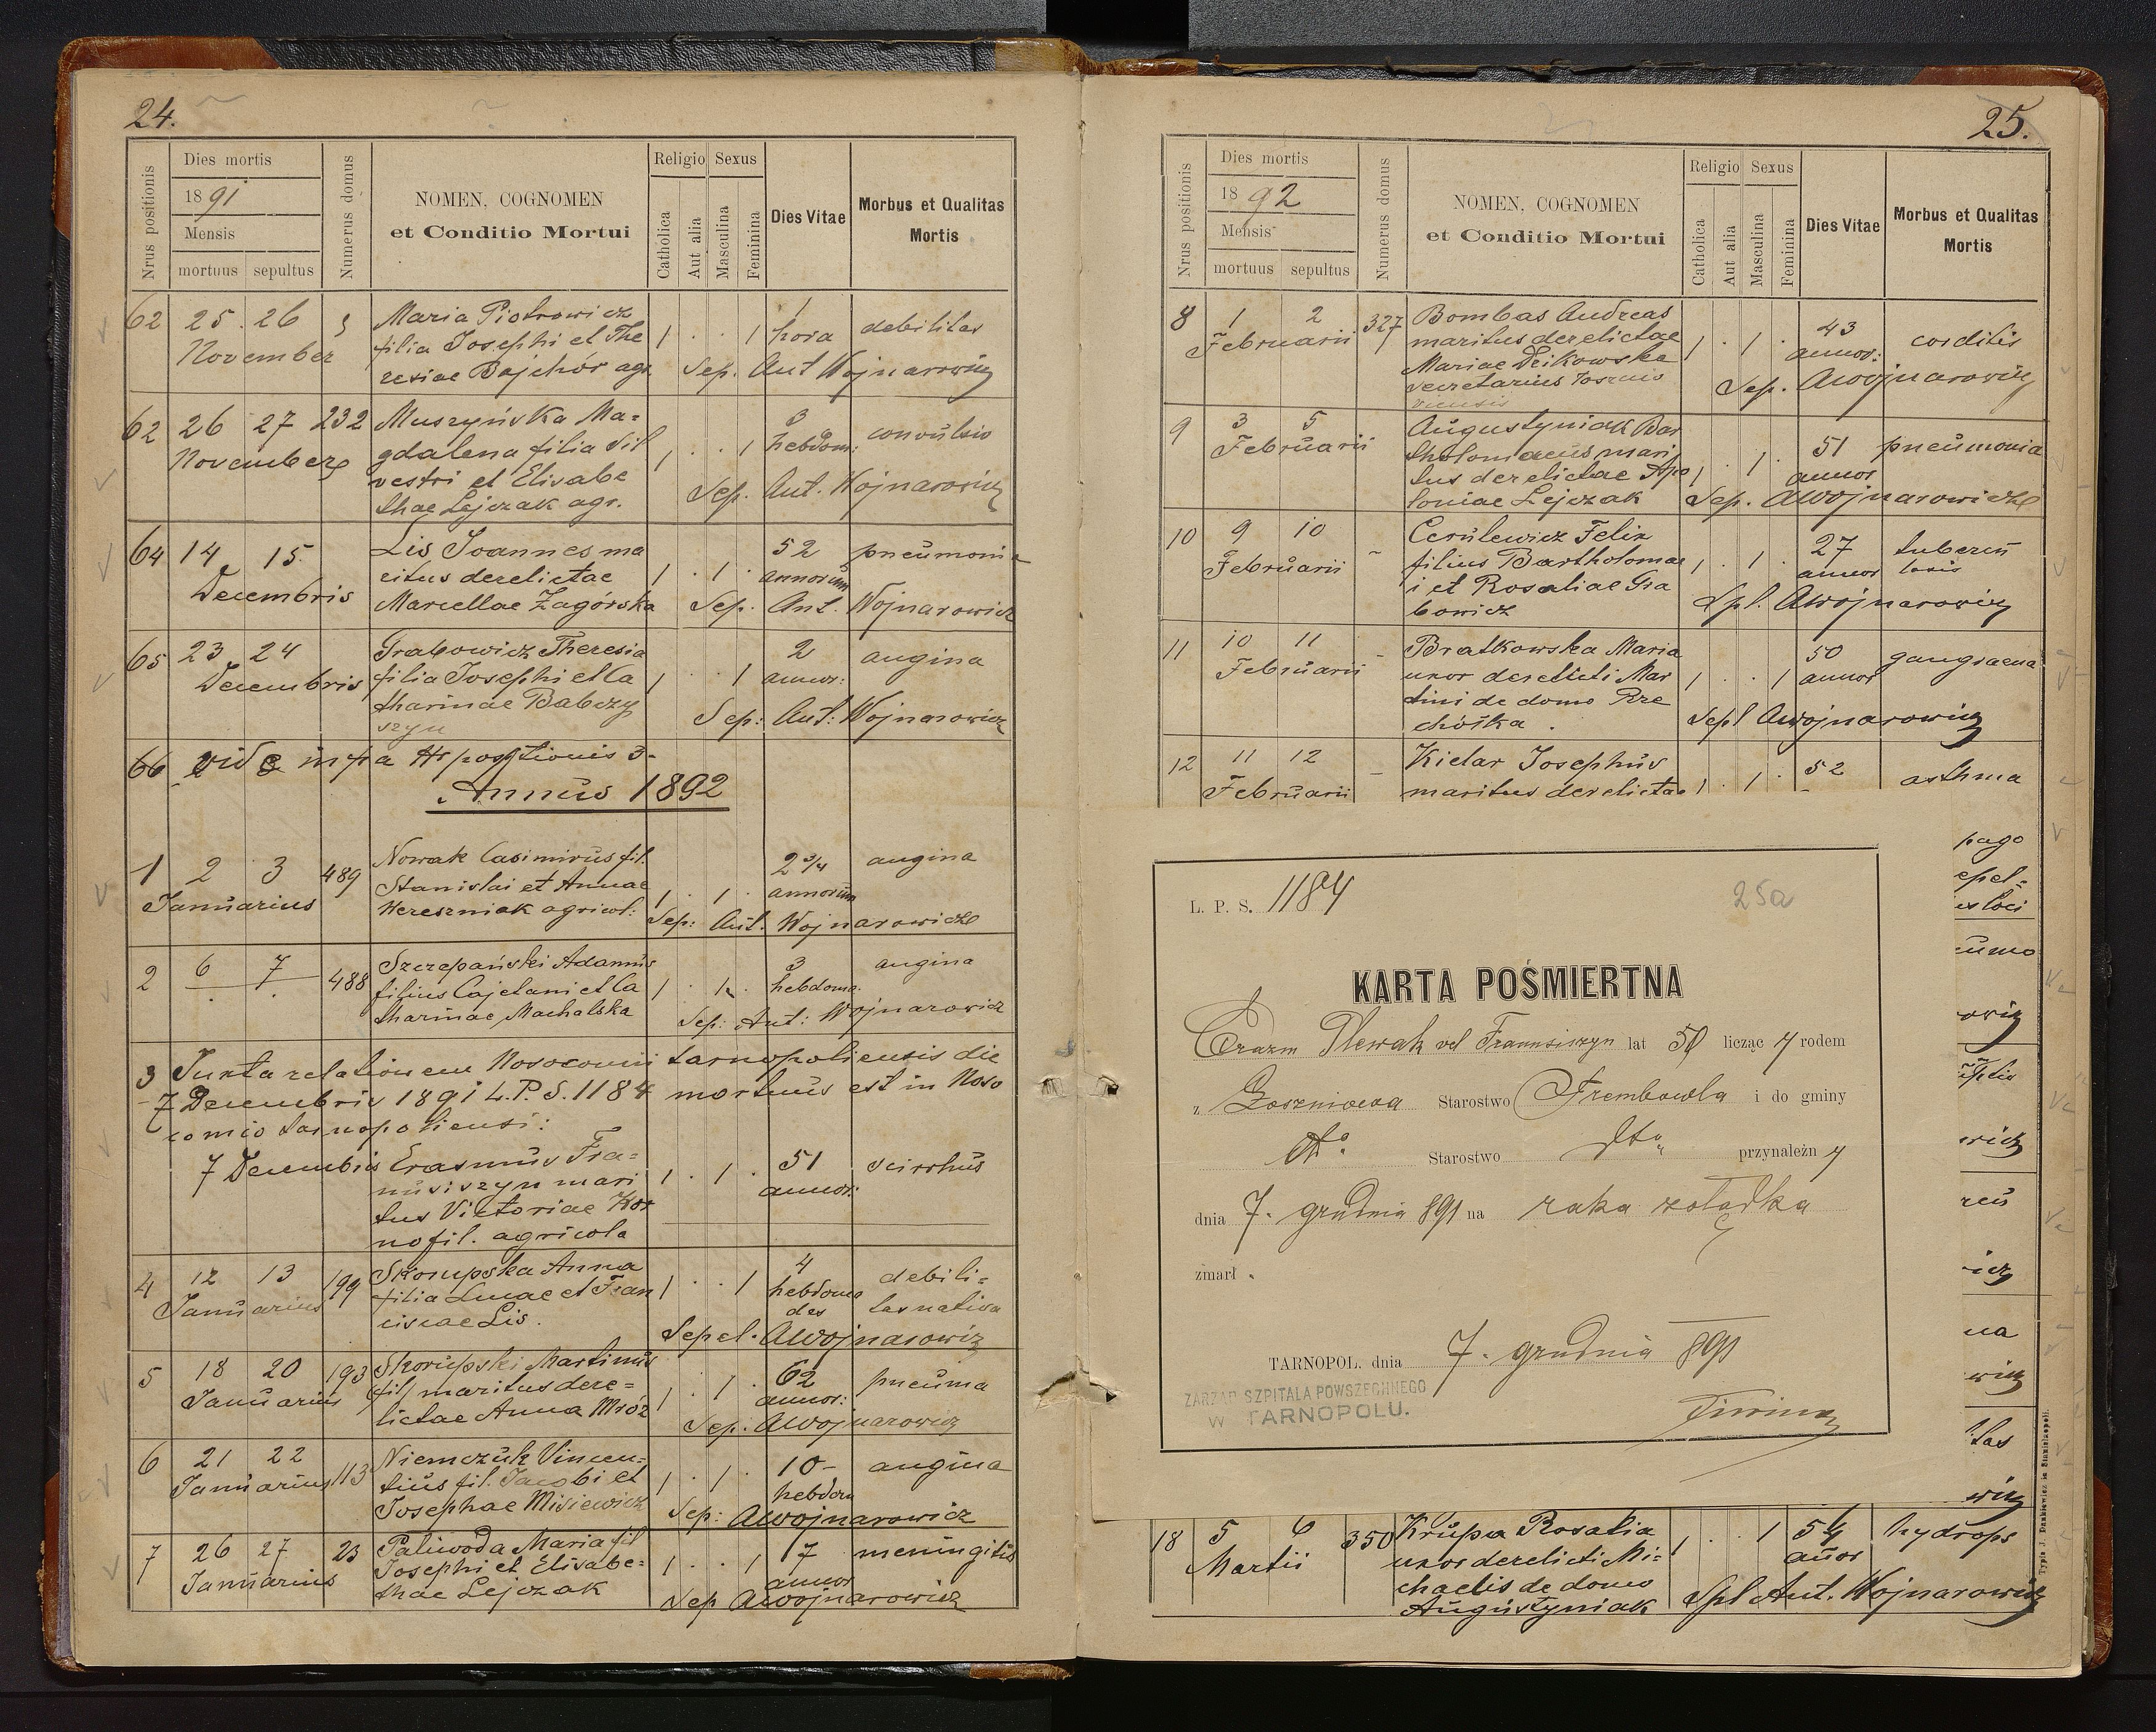 24.
Nrus positionis
Dies mortis
1891
Mensis
mortuus sepultus
Numerus domus
NOMEN, COGNOMEN
et Conditio Mortui
Religio Sexus
Catholica
Aut alia
Masculina
Feminina
Dies Vitae
Morbus et Qualitas
Mortis
62 25. 26 Maria Piotrowicz 1 debilitas
November filia Josephi et The 1 . . 1 hora
resiae Bajchór agr. Sep. Ant Wojnarowicz
62 26 27 232 Muszyńska Ma= 3 convulsio
November gdalena filia Sil 1 . . 1 hebdom:
vestri et Elisabe
thae Lejczak agr. Sep. Ant. Wojnarowicz
64 14 15. Lis Joannes ma 52 pneumonia
Decembris ritus derelictae 1 . 1 . annorum
Marcellae Zagórska Sep. Ant. Wojnarowicz
65 23 24 Grabowicz Theresia 2 angina
Decembris filia Josephi et Ca 1 . . 1 annor:
tharinae Babczy
szyn Sep: Ant: Wojnarowicz
66 vide infra Nr positionis 3-
Annus 1892
1 2 3 489 Nowak Casimirus fil. 2 3/4 angina
Januarius Stanislai et Annae 1 . 1 . annorum
Hereszniak agricol: Sep: Ant. Wojnarowicz
2 6 7 488 Szczepański Adamus 3 angina
filius Cajetani et Ca 1 . 1 . hebdoma.
tharinae Machalska Sep: Ant: Wojnarowicz
3 Juxta relationem Nosocomii tarnopoliensis die
7 Decembris 1891 L.P.S. 1184 mortuus est in Noso
comio tarnopoliensi:
7 Decembris Erasmus Fra= 1 . 1 . 51 scirrhus
nusiszyn mari annor:
tus Victoriae Kor
no fil. agricola
4 12 13 199 Skorupska Anna 4 debili=
Januarius filia Lucae et Fran 1 . . 1 hebdoma tas nativa
ciscae Lis. des
Sepel. AWojnarowicz
5 18 20 193 Skorupski Martinus 62 pneuma
Januarius fil/ maritus dere= 1 . 1 . annor:
lictae Anna Mróz Sep: AWojnarowicz
6 21 22 113 Niemczuk Vincen= 10- angina
Januarius tius fil. Jacobi et 1 . 1 . hebdom
Josephae Misiewicz Sep: AWojnarowicz
7 26 27 23 Paliwoda Maria fil 17 meningitis
Januarius Josephi et Elisabe= 1 . . 1 annor
thae Lejczak Sep AWojnarowicz
25.
Nrus positionis
Dies mortis
1892
Mensis
mortuus sepultus
Numerus domus
NOMEN, COGNOMEN
et Conditio Mortui
Religio Sexus
Catholica
Aut alia
Masculina
Feminina
Dies Vitae
Morbus et Qualitas
Mortis
8 1 2 327 Bombas Andreas 43
Februarii maritus derelictae 1 . 1 . annor:
Mariae
secretarius
Sep. AWojnarowicz
9 3 5 Augustyniak Bar 51 pneumonia
Februarii tholomaeus mari 1 . 1 . annor
tus derelictae Apo
loniae Lejczak Sep. AWojnarowicz
10 9 10 - Cerulewicz Felix 27 tubercu
Februarii filius Bartholomae 1 . 1 . annor losis
i et Rosaliae Gra
bowicz Spl. AWojnarowicz
11 10 11 - Bratkowska Maria 50 gangraena
Februarii uxor derelicti Mar 1 . . 1 annor
tini de domo Prze
chóska. Sepl AWojnarowicz
12 11 12 - Kielar Josephus 52 asthma
Februarii maritus derelictae 1 . 1 .
pago
epel=
us loci
L. P. S. 1184
25a
KARTA POŚMIERTNA
Erazm Plewak vel Franusiszyn lat 50 licząc y rodem
z Łoszniowa Starostwo Trembowla i do gminy
dto. Starostwo dto przynależn y
dnia 7. grudnia 891 na raka żołądka
zmarł.
TARNOPOL. dnia 7. grudnia 891
ZARZĄD SZPITALA POWSZECHNEGO
W TARNOPOLU.
18 5 6 350 Krupa Rosalia 1 . . 1 54 hydrops
Martii uxor derelicti Mi= añor
chaelis de domo
Augustyniak Spl Ant. Wojnarowicz